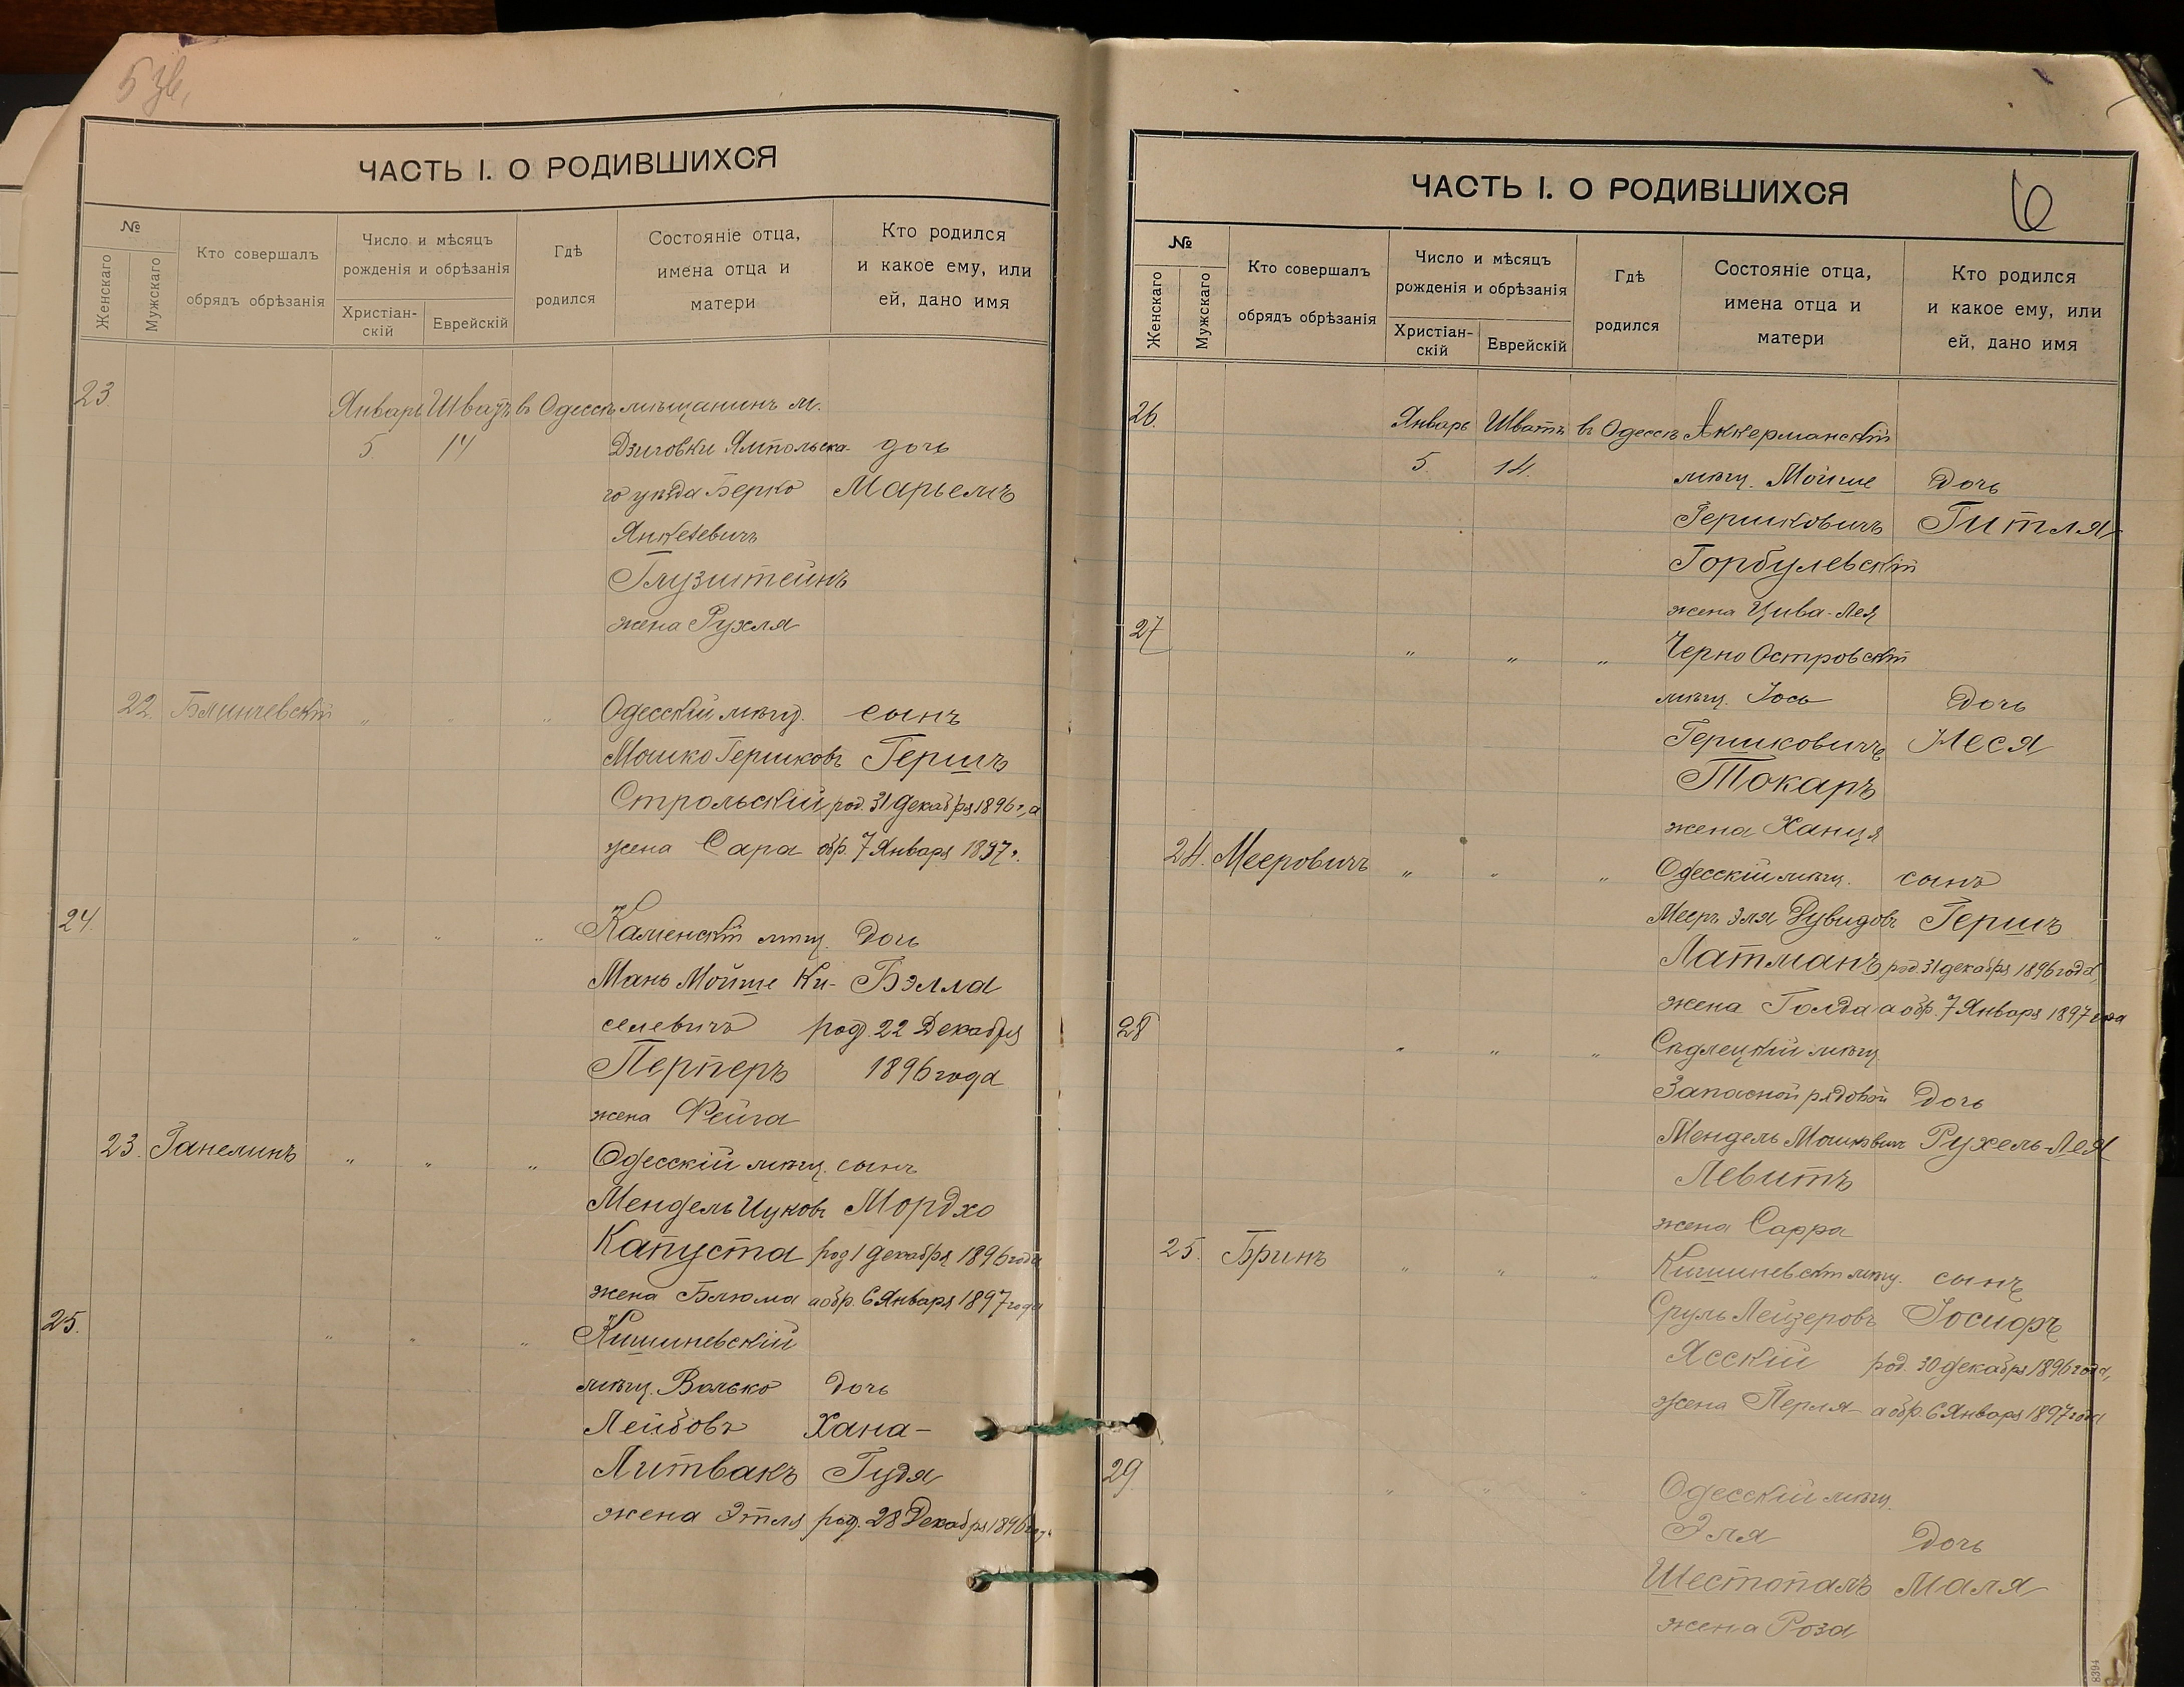 5 зв.
ЧАСТЬ I. О РОДИВШИХСЯ
№
Женскаго
Мужскаго
Кто совершалъ
обрядъ обрѣзанія
Число и мѣсяцъ
рожденія и обрѣзанія
Христіан-
скій
Еврейскій
Гдѣ
родился
Состояніе отца,
имена отца и
матери
Кто родился
и какое ему, или
ей, дано имя
23 Январь Шватъ въ Одессѣ мѣщанинъ м.
5 14 Дзиговки Ямпольска- дочь
го уѣзда Берко Марьемъ
Янкелевичъ
Глузштейнъ
жена Рухля
22. Блинчевскій „ „ „ Одесскій мѣщ. сынъ
Мошко Гершковъ Гершъ
Строльскій род. 31 декабря 1896 г, а
жена Сара обр. 7 Января 1897 г.
24 „ „ „ Каменскій мѣщ. Дочь
Мань Мойше Ки- Бэлла
селевичъ род. 22 Декабря
Перперъ 1896 года
жена Фейга
23. Ганелинъ „ „ „ Одесскій мѣщ. сынъ
Мендель Ицковъ Мордхо
Капуста род 1 декабря 1896 года
жена Блюма а обр. 6 Января 1897 года
25. „ „ „ Кишиневскій
мѣщ. Волько Дочь
Лейбовъ Хана-
Литвакъ Гудя
жена Этля род. 28 Декабря 1896 году
ЧАСТЬ I. О РОДИВШИХСЯ
6
№
Женскаго
Мужскаго
Кто совершалъ
обрядъ обрѣзанія
Число и мѣсяцъ
рожденія и обрѣзанія
Христіан-
скій
Еврейскій
Гдѣ
родился
Состояніе отца,
имена отца и
матери
Кто родился
и какое ему, или
ей, дано имя
26. Январь Шватъ въ Одессѣ Аккерманскій
5. 14. мѣщ. Мойше Дочь
Гершковичъ Гитля
Горбулевскій
жена Цива-Лея
27 „ „ „ Черно Островскій
мѣщ. Іось Дочь
Гершковичъ Неся
Токаръ
жена Ханця
24. Мееровичъ „ „ „ Одесскій мѣщ. сынъ
Мееръ Эля Дувидовъ Гершъ
Латманъ род. 31 декабря 1896 года,
жена Голда а обр. 7 Января 1897 года
28 „ „ „ Сѣдлецкій мѣщ.
Запасной рядовой Дочь
Мендель Мошковичъ Рухель-Лея
Левитъ
жена Сарра
25. Бринъ „ „ „ Кишиневскій мѣщ. сынъ
Сруль Лейзеровъ Іосифъ
Ясскій род. 30 декабря 1896 года,
жена Перля а обр 6 Января 1897 года
29 „ „ „ Одесскій мѣщ.
Эля Дочь
Шестопалъ Маля
жена Роза
8394